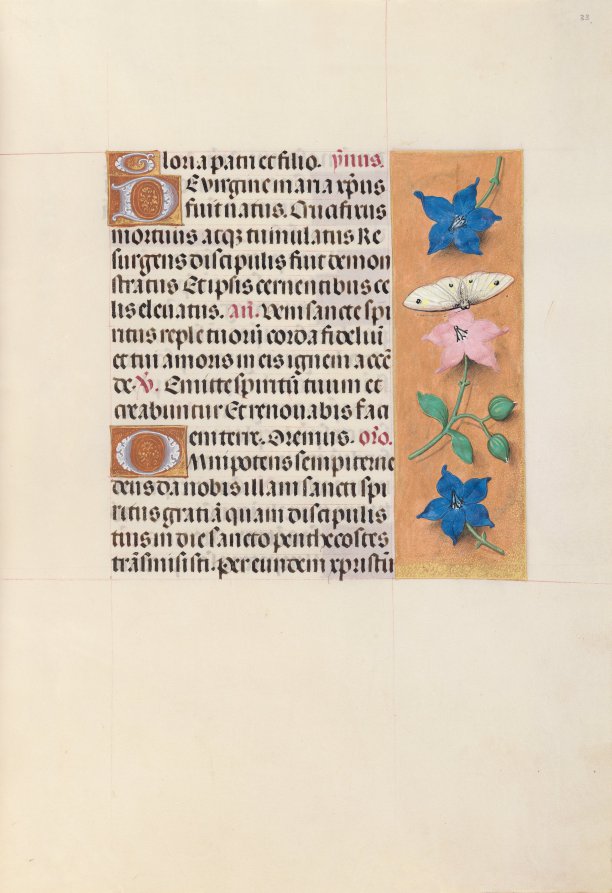 33
Gloria patri et filio. ymnus.
De virgine maria xp̄us
fuit natus. Crucifixus
mortuus atqʒ tumulatus Re
surgens discipulis fuit demon
stratus Et ipsis cernentibus ce
lis eleuatus. an̄. Veni sancte spi
ritus reple tuorū corda fideliū
et tui amoris in eis ignem accē
de. V̄. Emitte spiritū tuum et
creabuntur Et renouabis faci
em terre. Oremus. or̄o.
Omnipotens sempiterne
deus da nobis illam sancti spi
ritus gratiā quam discipulis
tuis in die sancto penthecostes
trāsmisisti. Per eundem xpristū